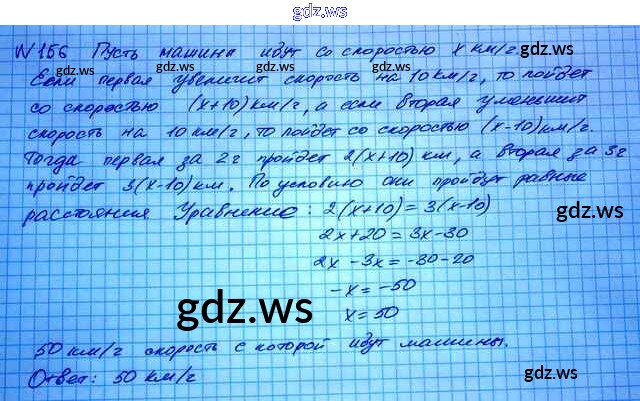 gdz.ws
N 156 Пусть машины идут со скоростью x км/г.
gdz.ws
Если первая увеличит скорость на 10 км/г, то пойдет
со скоростью (x+10) км/г, а если вторая уменьшит
gdz.ws
скорость на 10 км/г, то пойдет со скоростью (x-10) км/г.
Тогда первая за 2г пройдет 2(x+10) км, а вторая за 3г
пройдет 3(x-10) км. По условию они пройдут равные
расстояния Уравнение: 2(x+10)=3(x-10)
gdz.ws
2x+20=3x-30
2x-3x=-30-20
-x=-50
gdz.ws
x=50
50 км/г скорость с которой идут машины.
Ответ: 50 км/г
gdz.ws
gdz.ws